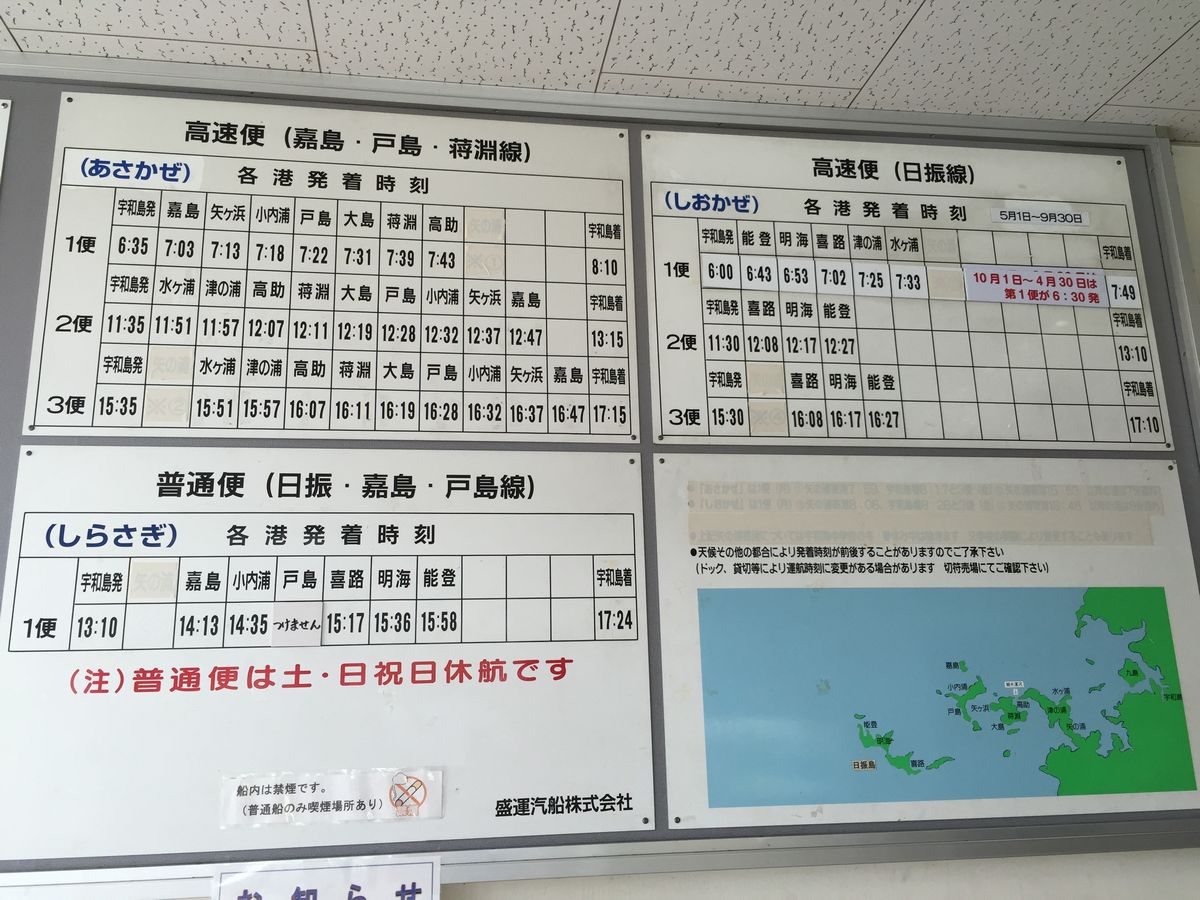 高速便（嘉島・戸島・蒋淵線）
（あさかぜ） 各港発着時刻
宇和島発 嘉島 矢ヶ浜 小内浦 戸島 大島 蒋淵 高助 矢の浦 宇和島着
1便 6:35 7:03 7:13 7:18 7:22 7:31 7:39 7:43 ※① 8:10
宇和島発 水ヶ浦 津の浦 高助 蒋淵 大島 戸島 小内浦 矢ヶ浜 嘉島 宇和島着
2便 11:35 11:51 11:57 12:07 12:11 12:19 12:28 12:32 12:37 12:47 13:15
宇和島発 矢の浦 水ヶ浦 津の浦 高助 蒋淵 大島 戸島 小内浦 矢ヶ浜 嘉島 宇和島着
3便 15:35 ※② 15:51 15:57 16:07 16:11 16:19 16:28 16:32 16:37 16:47 17:15
高速便（日振線）
（しおかぜ） 各港発着時刻 5月1日～9月30日
宇和島発 能登 明海 喜路 津の浦 水ヶ浦 矢の浦 宇和島着
1便 6:00 6:43 6:53 7:02 7:25 7:33 7:49
10月1日～4月30日は
第1便が6：30発
宇和島発 喜路 明海 能登 宇和島着
2便 11:30 12:08 12:17 12:27 13:10
宇和島発 喜路 明海 能登 宇和島着
3便 15:30 16:08 16:17 16:27 17:10
普通便（日振・嘉島・戸島線）
（しらさぎ） 各港発着時刻
宇和島発 矢の浦 嘉島 小内浦 戸島 喜路 明海 能登 宇和島着
1便 13:10 14:13 14:35 つけません 15:17 15:36 15:58 17:24
（注）普通便は土・日祝日休航です
船内は禁煙です。
（普通船のみ喫煙場所あり）
盛運汽船株式会社
●天候その他の都合により発着時刻が前後することがありますのでご了承下さい
（ドック、貸切等により運航時刻に変更がある場合があります 切符売場にてご確認下さい）
嘉島
小内浦
戸島
矢ヶ浜
大島
高助
蒋淵
水ヶ浦
津の浦
矢の浦
九島
宇和島
能登
明海
日振島
喜路
お知らせ